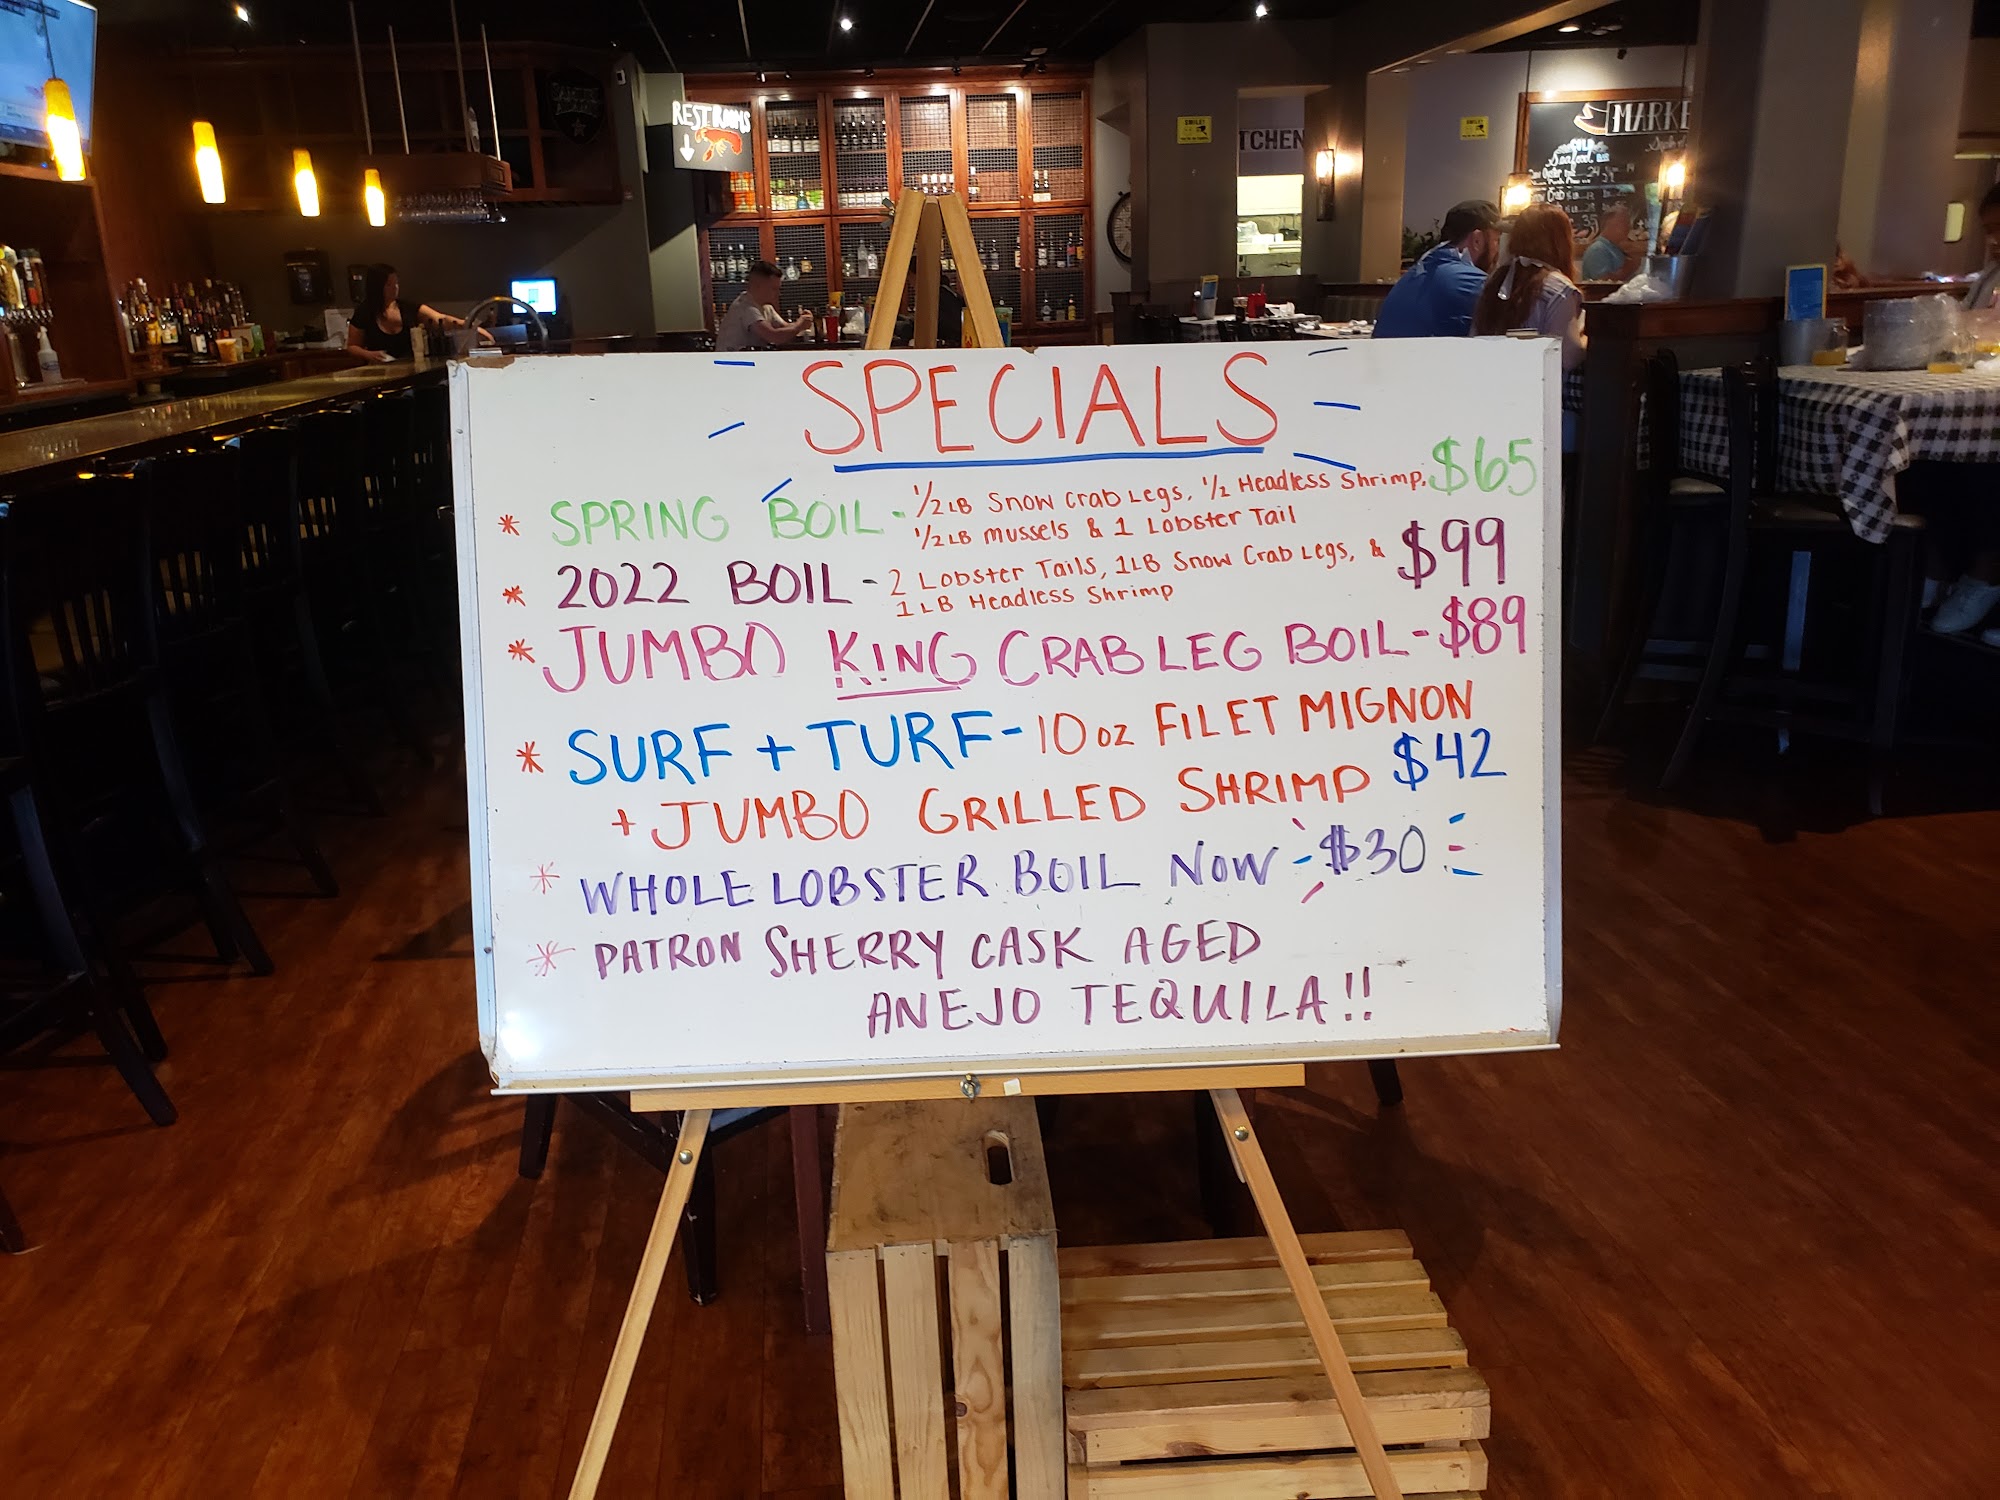 RESTROOMS
SMILE!
SMILE!
TCHEN
MARKE
Seafood
SPECIALS
* SPRING BOIL - 1/2 LB Snow Crab Legs, 1/2 Headless Shrimp, $65
1/2 LB Mussels & 1 Lobster Tail
* 2022 BOIL - 2 Lobster Tails, 1LB Snow Crab Legs, & $99
1 LB Headless Shrimp
* JUMBO KING CRAB LEG BOIL - $89
* SURF + TURF - 10 oz FILET MIGNON
+ JUMBO GRILLED SHRIMP $42
* WHOLE LOBSTER BOIL NOW $30
* PATRON SHERRY CASK AGED
ANEJO TEQUILA!!